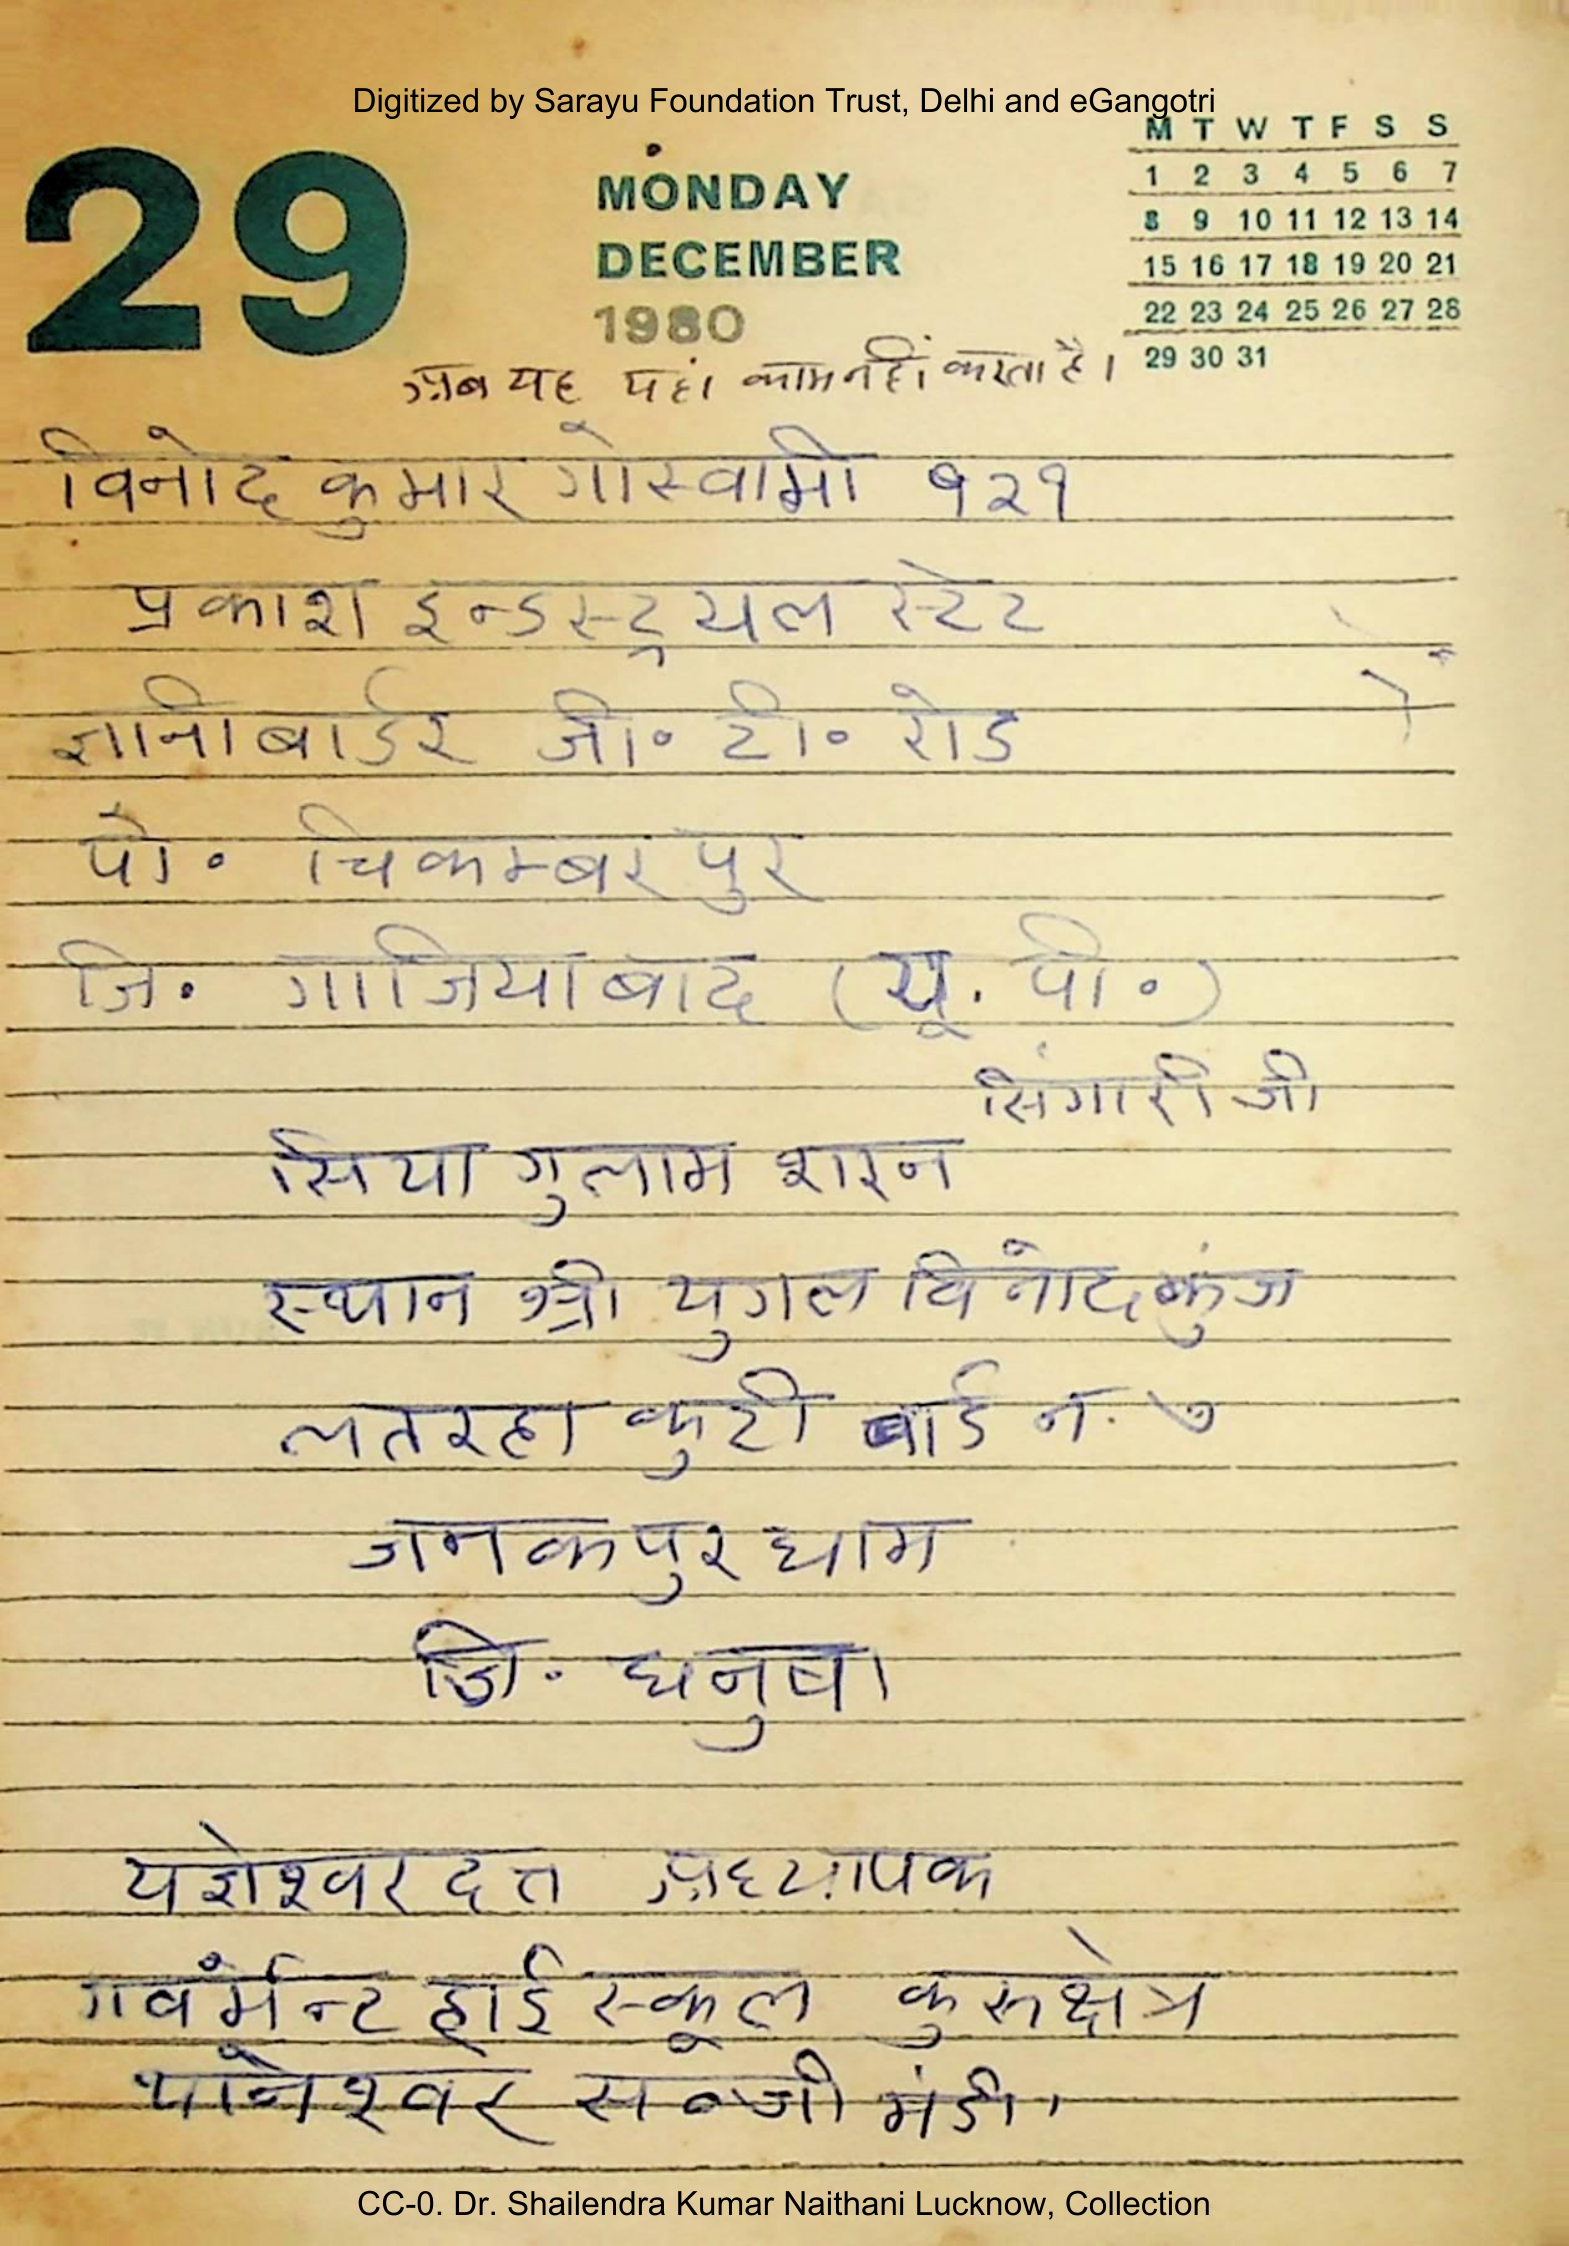 Digitized by Sarayu Foundation Trust, Delhi and eGangotri
29
MONDAY
DECEMBER
1980
M T W T F S S
1 2 3 4 5 6 7
8 9 10 11 12 13 14
15 16 17 18 19 20 21
22 23 24 25 26 27 28
29 30 31
अब यह यहां काम नहीं करता है।
विनोद कुमार गोस्वामी १२१
प्रकाश इन्डस्ट्रयल स्टेट
ज्ञानी बार्डर जी॰ टी॰ रोड
पो॰ चिकम्बरपुर
जि॰ गाजियाबाद (यू. पी॰)
सिंगारी जी
सिया गुलाम शरन
स्थान श्री युगल विनोद कुंज
लतरहा कुटी वार्ड न. ७
जनकपुर धाम
जि. धनुषा
यज्ञेश्वर दत्त अध्यापक
गवर्मेन्ट हाई स्कूल कुरुक्षेत्र
थानेश्वर सब्जी मंडी।
CC-0. Dr. Shailendra Kumar Naithani Lucknow, Collection